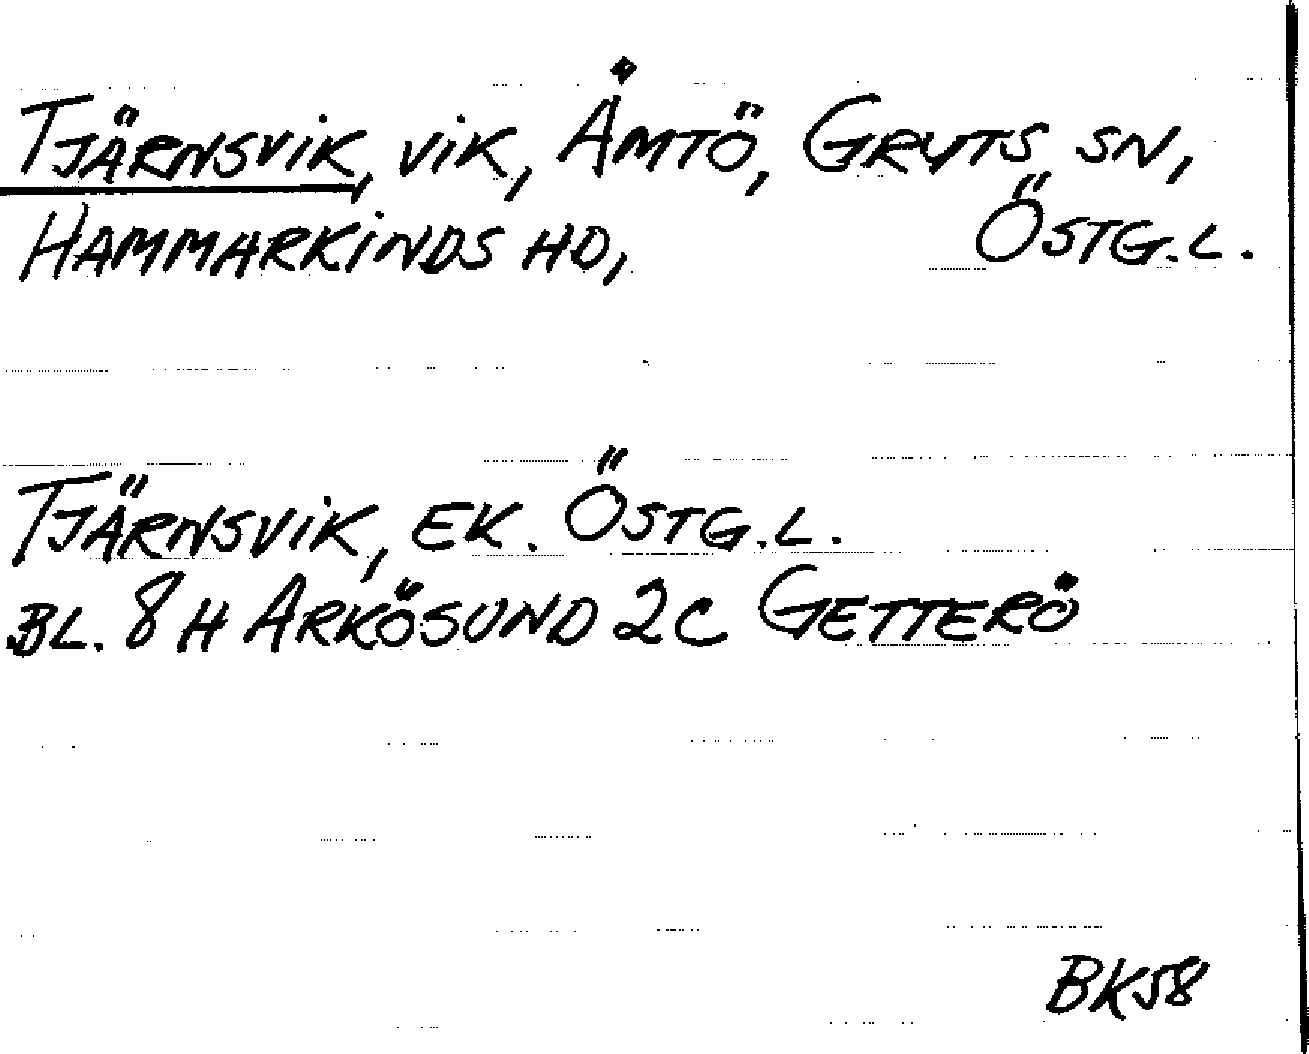 TJÄRNSVIK, VIK, ÅMTÖ, GRYTS SN,
HAMMARKINDS HD, ÖSTG.L.
TJÄRNSVIK, EK. ÖSTG.L.
BL. 8 H ARKÖSUND 2C GETTERÖ
BK58